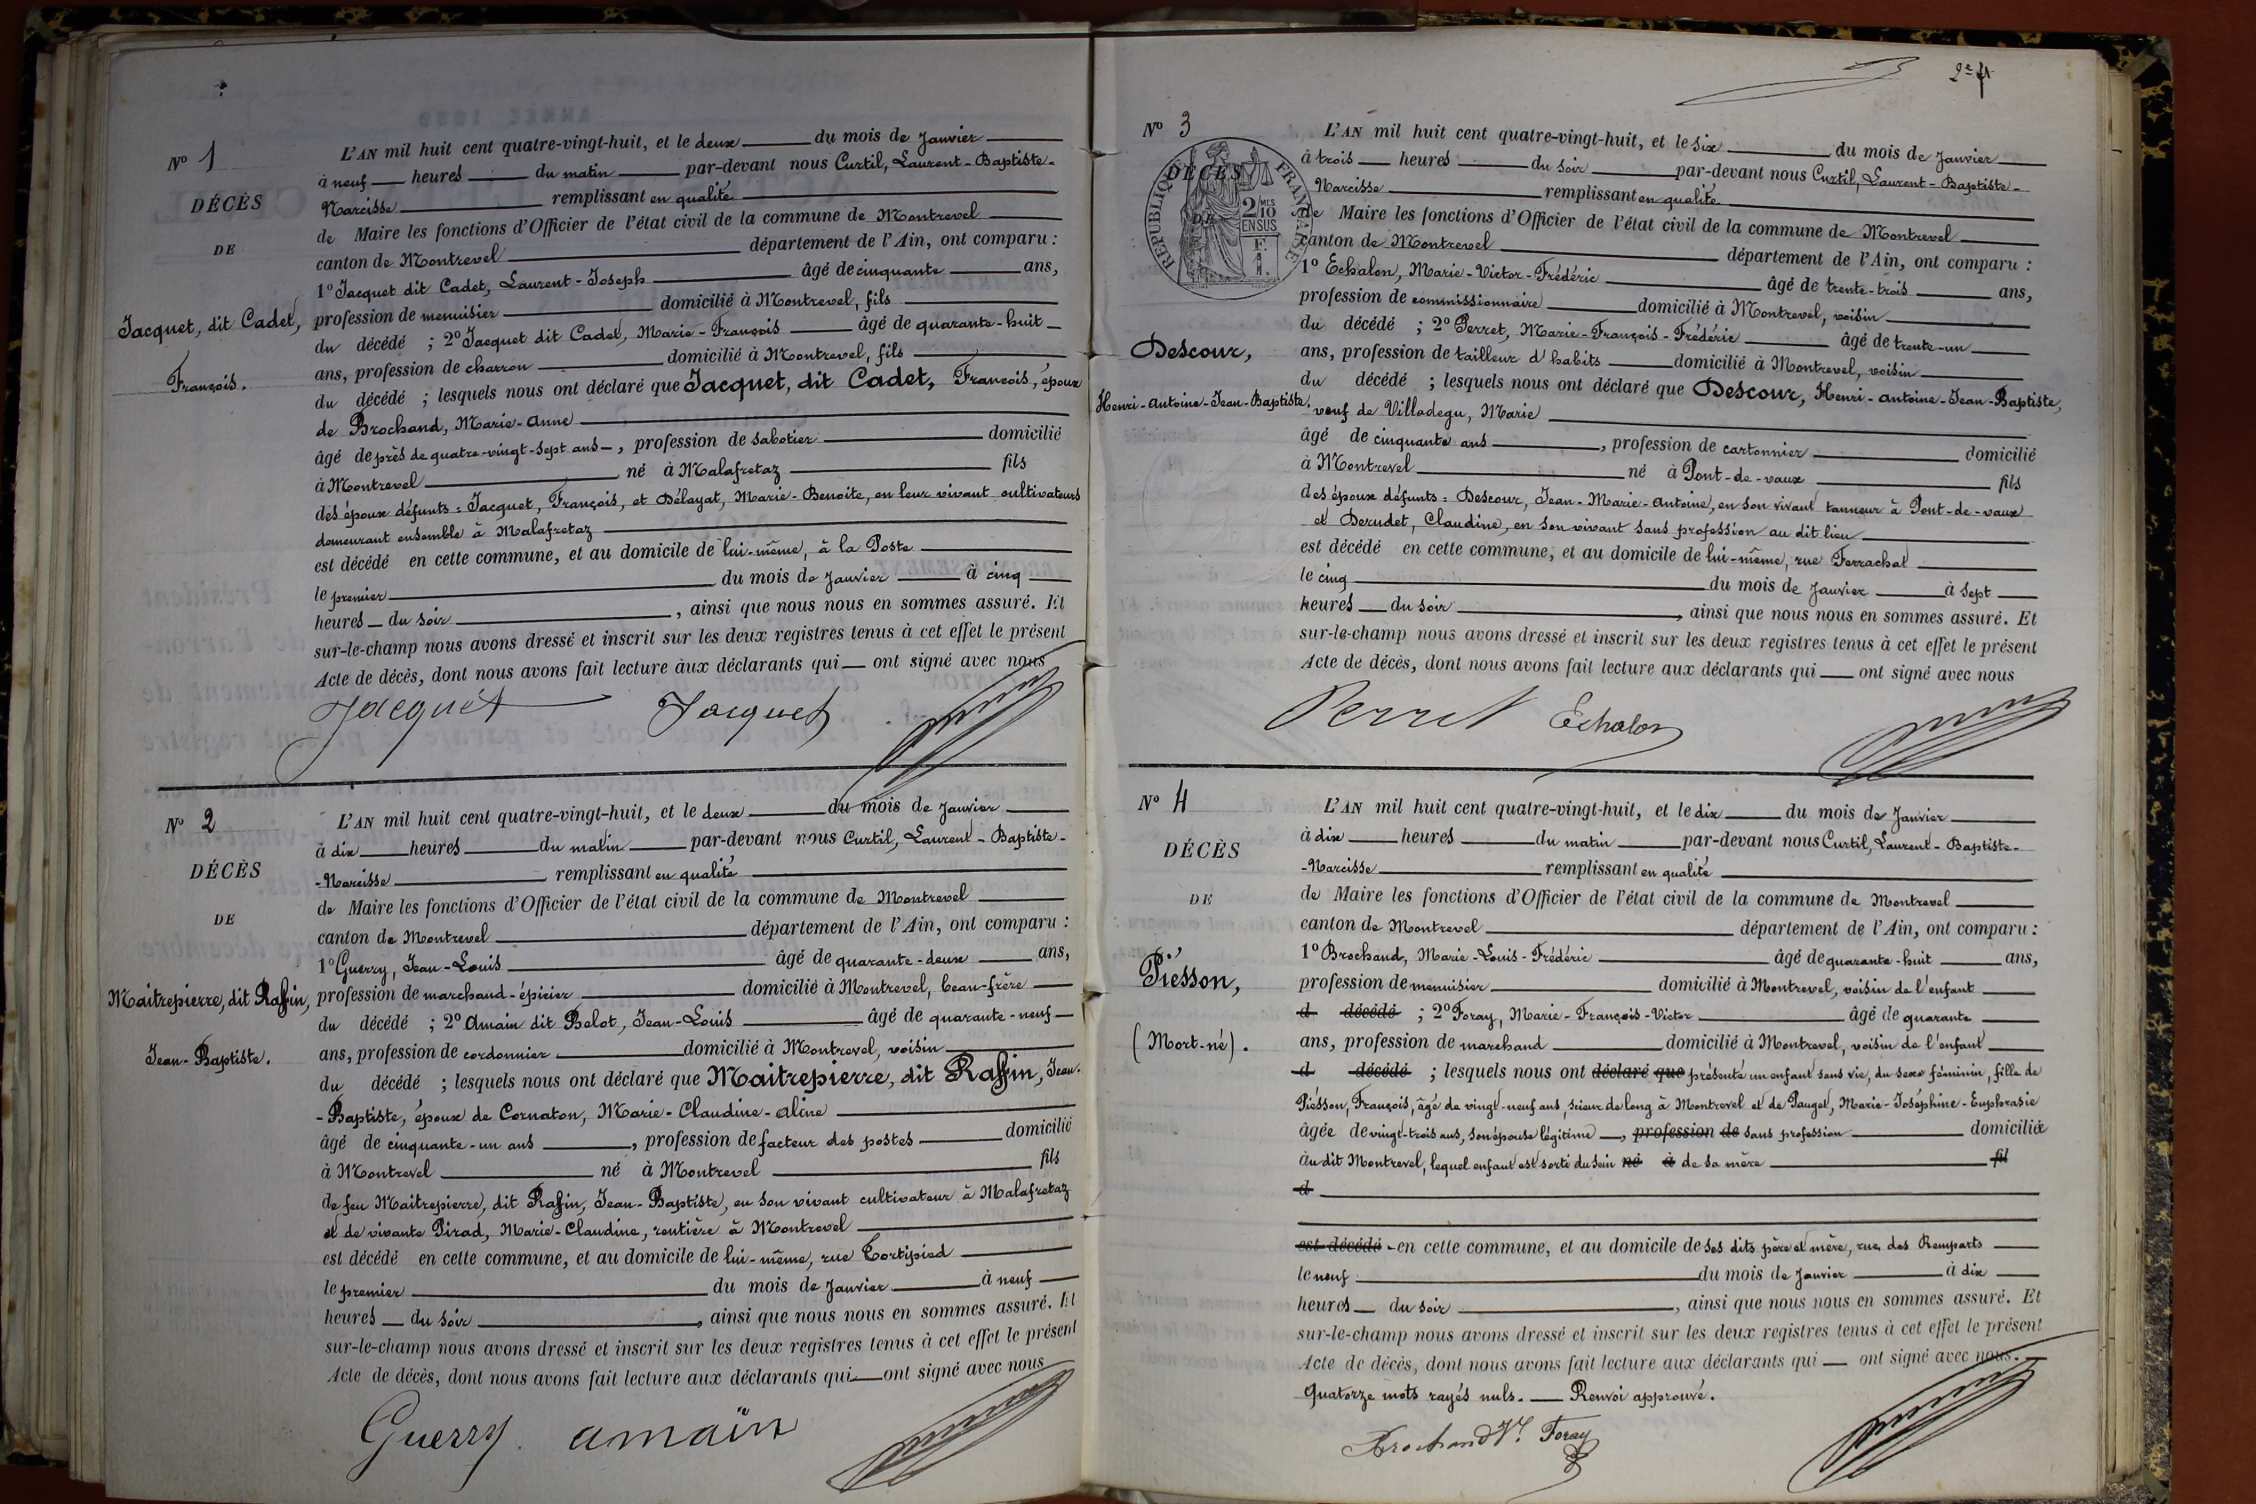 Nº 1
DÉCÈS
DE
Jacquet, dit Cadet,
François.
L'AN mil huit cent quatre-vingt-huit, et le deux du mois de Janvier
à neuf heures du matin par-devant nous Curtil, Laurent-Baptiste-
Narcisse remplissant en qualité
de Maire les fonctions d'Officier de l'état civil de la commune de Montrevel
canton de Montrevel département de l'Ain, ont comparu :
1º Jacquet dit Cadet, Laurent-Joseph âgé de cinquante ans,
profession de menuisier domicilié à Montrevel, fils
du décédé ; 2º Jacquet dit Cadet, Marie-François âgé de quarante-huit
ans, profession de charron domicilié à Montrevel, fils
du décédé ; lesquels nous ont déclaré que Jacquet, dit Cadet, François, époux
de Brochand, Marie-Anne
âgé de près de quatre-vingt-sept ans, profession de sabotier domicilié
à Montrevel né à Malafretaz fils
des époux défunts : Jacquet, François, et Délayat, Marie-Benoite, en leur vivant cultivateurs
demeurant ensemble à Malafretaz
est décédé en cette commune, et au domicile de lui-même, à la Poste
le premier du mois de Janvier à cinq
heures du soir, ainsi que nous nous en sommes assuré. Et
sur-le-champ nous avons dressé et inscrit sur les deux registres tenus à cet effet le présent
Acte de décès, dont nous avons fait lecture aux déclarants qui ont signé avec nous
Jacquet Jacquet
Nº 2
DÉCÈS
DE
Maitrepierre, dit Raffin,
Jean-Baptiste.
L'AN mil huit cent quatre-vingt-huit, et le deux du mois de Janvier
à dix heures du matin par-devant nous Curtil, Laurent-Baptiste-
-Narcisse remplissant en qualité
de Maire les fonctions d'Officier de l'état civil de la commune de Montrevel
canton de Montrevel département de l'Ain, ont comparu :
1º Guerry, Jean-Louis âgé de quarante-deux ans,
profession de marchand-épicier domicilié à Montrevel, beau-frère
du décédé ; 2º Amain dit Belot, Jean-Louis âgé de quarante-neuf
ans, profession de cordonnier domicilié à Montrevel, voisin
du décédé ; lesquels nous ont déclaré que Maitrepierre, dit Raffin, Jean-
-Baptiste, époux de Cornaton, Marie-Claudine-Aline
âgé de cinquante-un ans, profession de facteur des postes domicilié
à Montrevel né à Montrevel fils
de feu Maitrepierre, dit Raffin, Jean-Baptiste, en son vivant cultivateur à Malafretaz
et de vivante Pirad, Marie-Claudine, rentière à Montrevel
est décédé en cette commune, et au domicile de lui-même, rue Tortipied
le premier du mois de Janvier à neuf
heures du soir, ainsi que nous nous en sommes assuré. Et
sur-le-champ nous avons dressé et inscrit sur les deux registres tenus à cet effet le présent
Acte de décès, dont nous avons fait lecture aux déclarants qui ont signé avec nous
Guerry. amain
Nº 3
DÉCÈS
DE
RÉPUBLIQUE FRANÇAISE
2/10
EN SUS
Descour,
Henri-Antoine-Jean-Baptiste.
L'AN mil huit cent quatre-vingt-huit, et le six du mois de Janvier
à trois heures du soir par-devant nous Curtil, Laurent-Baptiste-
Narcisse remplissant en qualité
de Maire les fonctions d'Officier de l'état civil de la commune de Montrevel
canton de Montrevel département de l'Ain, ont comparu :
1º Echalon, Marie-Victor-Frédéric âgé de trente-trois ans,
profession de commissionnaire domicilié à Montrevel, voisin
du décédé ; 2º Perret, Marie-François-Frédéric âgé de trente-un
ans, profession de tailleur d'habits domicilié à Montrevel, voisin
du décédé ; lesquels nous ont déclaré que Descour, Henri-Antoine-Jean-Baptiste,
veuf de Villadegu, Marie
âgé de cinquante ans, profession de cartonnier domicilié
à Montrevel né à Pont-de-vaux fils
des époux défunts : Descour, Jean-Marie-Antoine, en son vivant tanneur à Pont-de-vaux
et Derudet, Claudine, en son vivant sans profession au dit lieu
est décédé en cette commune, et au domicile de lui-même, rue Ferrachat
le cinq du mois de Janvier à sept
heures du soir, ainsi que nous nous en sommes assuré. Et
sur-le-champ nous avons dressé et inscrit sur les deux registres tenus à cet effet le présent
Acte de décès, dont nous avons fait lecture aux déclarants qui ont signé avec nous
Perret Echalon
Nº 4
DÉCÈS
DE
Piésson,
(Mort-né).
L'AN mil huit cent quatre-vingt-huit, et le dix du mois de Janvier
à dix heures du matin par-devant nous Curtil, Laurent-Baptiste-
-Narcisse remplissant en qualité
de Maire les fonctions d'Officier de l'état civil de la commune de Montrevel
canton de Montrevel département de l'Ain, ont comparu :
1º Brochand, Marie-Louis-Frédéric âgé de quarante-huit ans,
profession de menuisier domicilié à Montrevel, voisin de l'enfant
d décédé ; 2º Foray, Marie-François-Victor âgé de quarante
ans, profession de marchand domicilié à Montrevel, voisin de l'enfant
d décédé ; lesquels nous ont déclaré que présenté un enfant sans vie, du sexe féminin, fille de
Piésson, François, âgé de vingt-neuf ans, scieur de long à Montrevel et de Pauget, Marie-Joséphine-Euphrasie
âgée de vingt-trois ans, son épouse légitime, profession de sans profession domiciliée
au dit Montrevel, lequel enfant est sorti du sein né à de sa mère fil
d
est décédé en cette commune, et au domicile de ses dits père et mère, rue des Remparts
le neuf du mois de Janvier à dix
heures du soir, ainsi que nous nous en sommes assuré. Et
sur-le-champ nous avons dressé et inscrit sur les deux registres tenus à cet effet le présent
Acte de décès, dont nous avons fait lecture aux déclarants qui ont signé avec nous.
Quatorze mots rayés nuls. Renvoi approuvé.
Brochand Vr. Foray